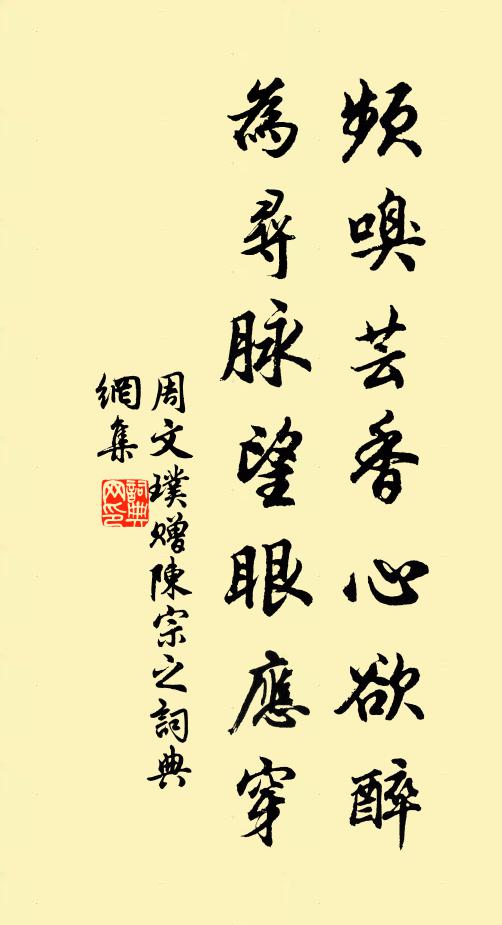 頻嗅芸香心欲醉
為尋脉望眼應穿
周文璞贈陳宗之詞典
網集
詞典
网印